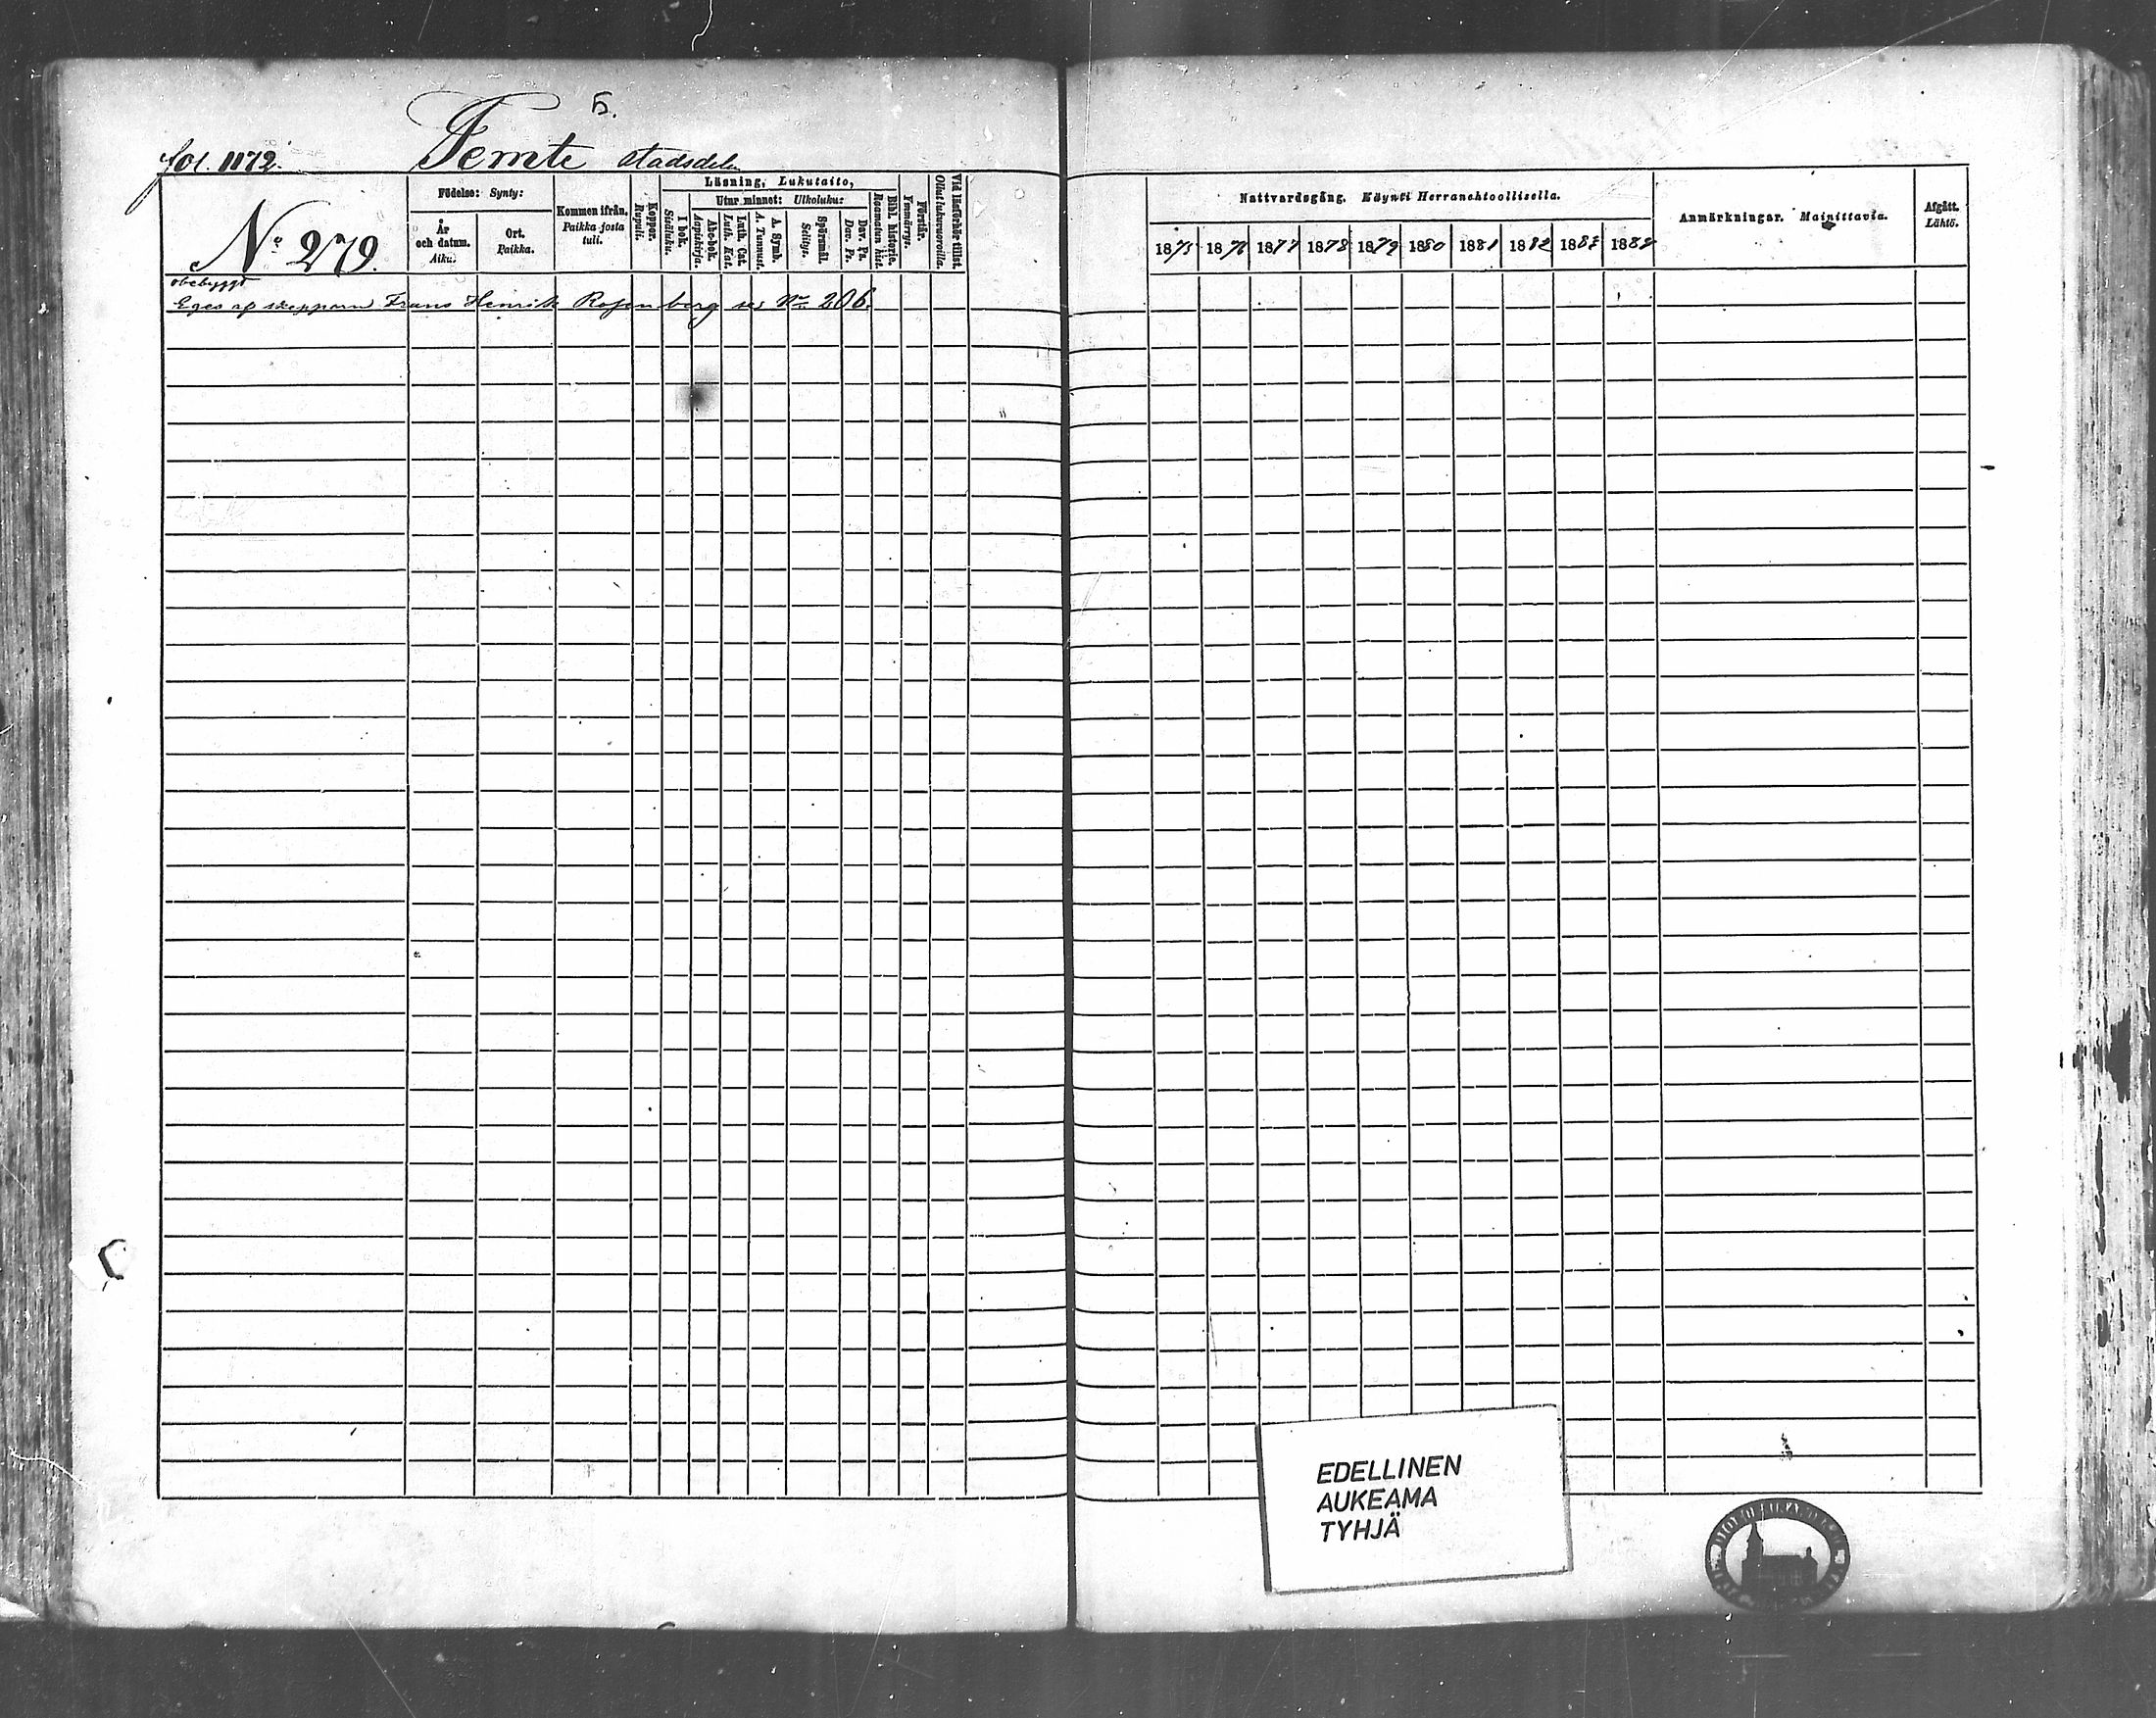 5.
fol. 1172. Femte stadsdelen
No 279.
Födelse: Synty:
År och datum. Aika.
Ort. Paikka.
Kommen ifrån. Paikka josta tuli.
Koppor. Rupuli.
Läsning, Lukutaito,
I bok. Sisäluku.
Utur minnet: Ulkoluku:
Abc-bok. Aapiskirja.
Luth. Cat. Luth. Kat.
A. Symb. A. Tunnust.
Spörsmål. Selitys.
Dav. Ps. Dav. Ps.
Bibl. historie. Raamatun hist.
Förstår. Ymmärrys.
Vid läsförhör tillst. Ollut lukuvuoroilla.
obebyggt
Eges af skepparn Frans Henrik Rosenberg se No 206.
Nattvardsgång. Käynti Herranehtoollisella.
1875 1876 1877 1878 1879 1880 1881 1882 1883 1884
Anmärkningar. Mainittavia.
Afgått. Lähtö.
EDELLINEN
AUKEAMA
TYHJÄ